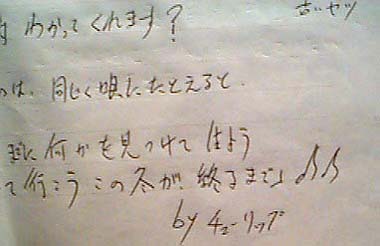 わかってくれます?
古いヤツ
は、同じく唄にたとえると、
に何かを見つけて はよう
て行こう この冬が終るまで♪♪
by チューリップ